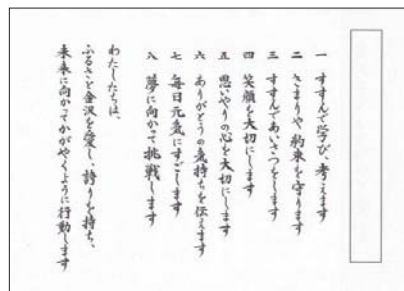 一 すすんで学び、考えます
二 きまりや約束を守ります
三 すすんであいさつをします
四 笑顔を大切にします
五 思いやりの心を大切にします
六 ありがとうの気持ちを伝えます
七 毎日元気にすごします
八 夢に向かって挑戦します
わたしたちは、
ふるさと金沢を愛し、誇りを持ち、
未来に向かってかがやくように行動します